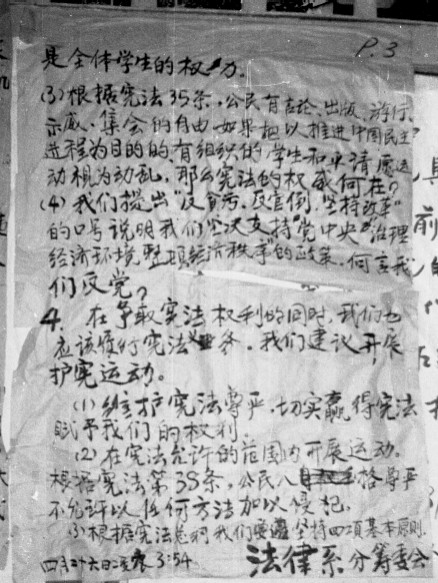 P.3
是全体学生的权力.
(3)根据宪法35条,公民有言论、出版、游行、
示威、集会的自由如果把以推进中国民主
进程为目的的、有组织的学生和平请愿运
动视为动乱,那么宪法的权威何在?
(4)我们提出"反贪污、反官倒、坚持改革"
的口号说明我们坚决支持"党中央""治理
经济环境,整顿经济秩序"的政策,何言我
们反党?
4. 在争取宪法权利的同时,我们也
应该履行宪法义务,我们建议开展
护宪运动。
(1)维护宪法尊严,切实赢得宪法
赋予我们的权利
(2)在宪法允许的范围内开展运动。
根据宪法第38条,公民人格尊严
不允许以任何方法加以侵犯.
(3)根据宪法总纲我们要坚持四项基本原则.
四月二十六日凌晨3:54 法律系分筹委会